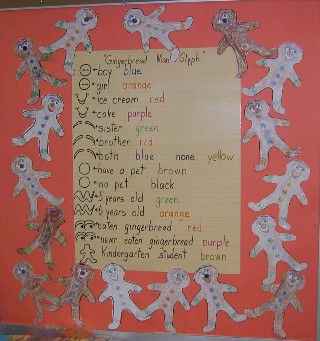 "Gingerbread Man Glyph"
boy blue
girl orange
ice cream red
cake purple
sister green
brother red
both blue none yellow
have a pet brown
no pet black
5 years old green
6 years old orange
eaten gingerbread red
never eaten gingerbread purple
kindergarten student brown